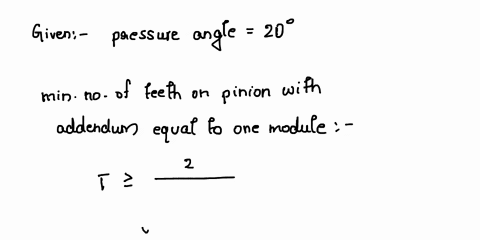 Given:- pressure angle = 20°
min. no. of teeth on pinion with
addendum equal to one module :-
T ≥ 2